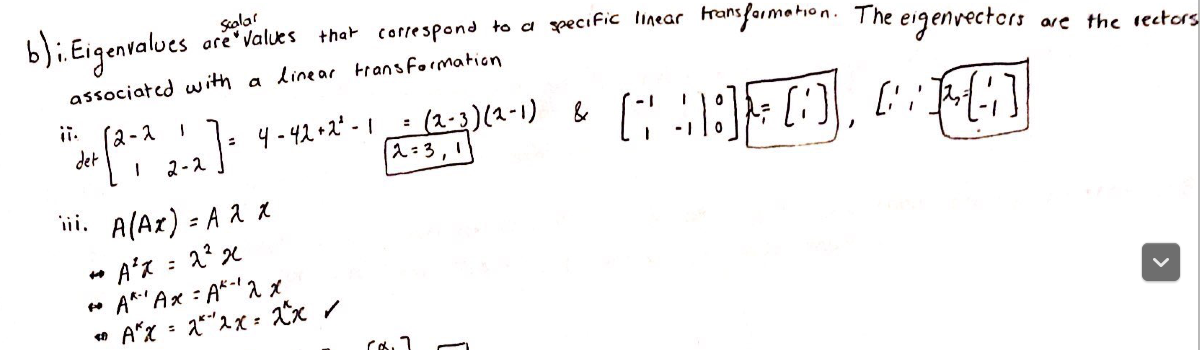 b) i. Eigenvalues are scalar values that correspond to a specific linear transformation. The eigenvectors are the vectors
associated with a linear transformation
ii. det [2-λ 1; 1 2-λ] = 4-4λ+λ²-1 = (λ-3)(λ-1) & [-1 1 | 0; 1 -1 | 0] λ₁= [1; 1], [1 1; 1 1] λ₂= [1; -1]
λ=3, 1
iii. A(Ax) = Aλx
⇔ A²x = λ²x
⇔ Aᴷ⁻¹Ax = Aᴷ⁻¹λx
⇔ Aᴷx = λᴷ⁻¹λx = λᴷx ✓